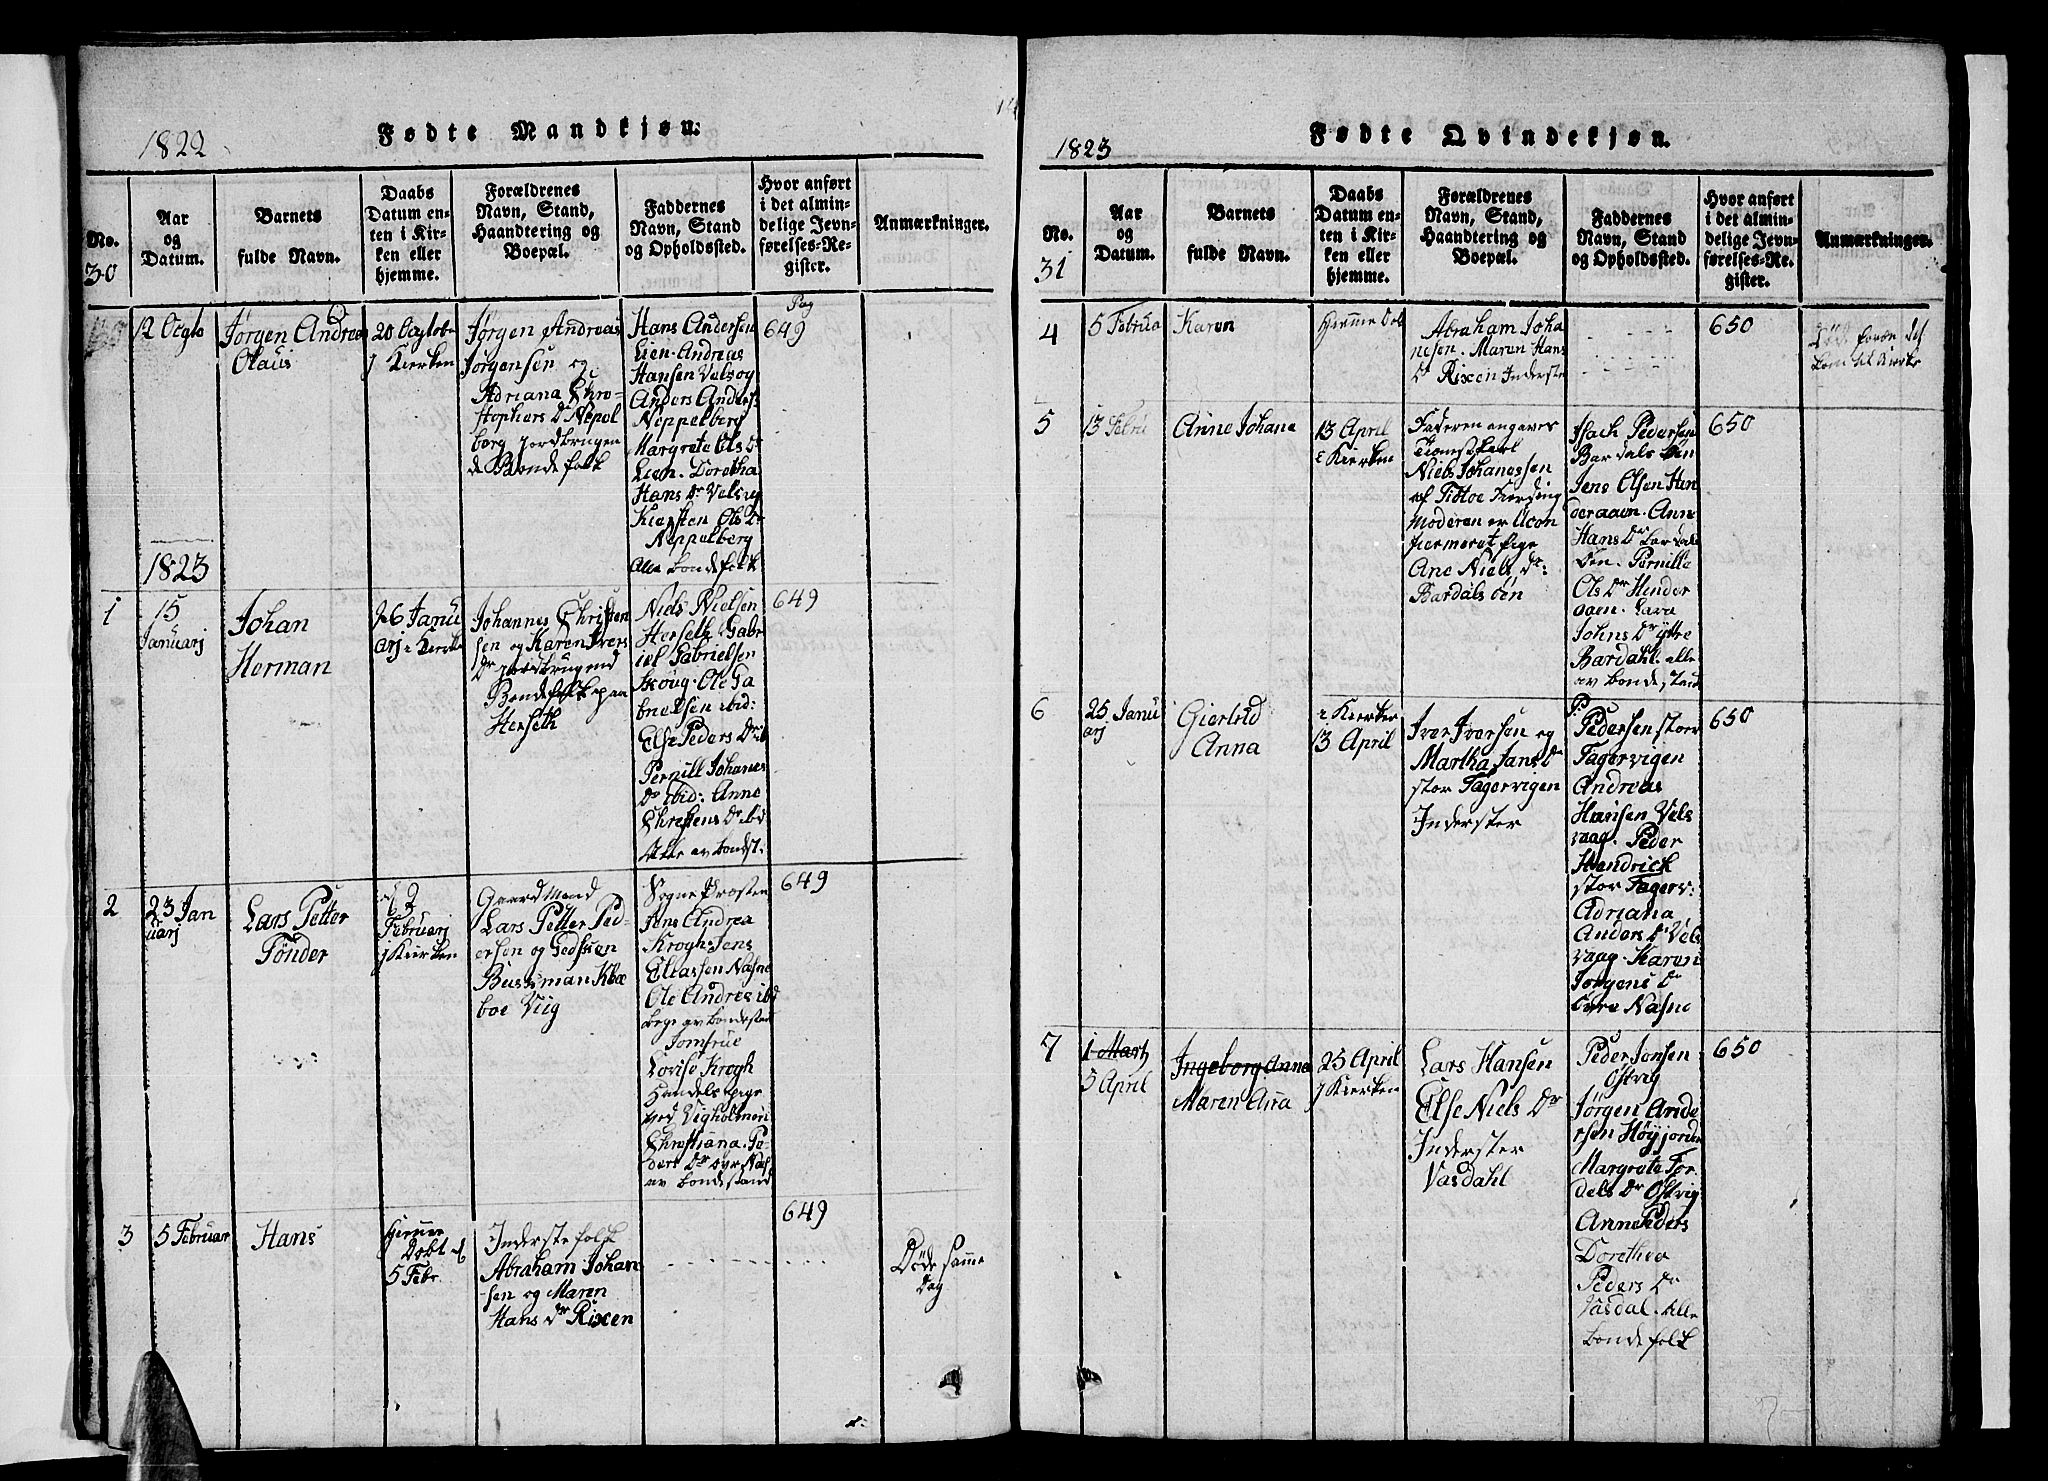 14
1822
Fødte Mandkjøn.
No.
30
Aar
og
Datum.
Barnets
fulde Navn.
Daabs
Datum en-
ten i Kir-
ken eller
hjemme.
Forældrenes
Navn, Stand,
Haandtering og
Boepæl.
Faddernes
Navn, Stand
og Opholdssted.
Hvor anført
i det almin-
delige Jevn-
førelses-Re-
gister.
Anmærkninger.
12 Octb
Jørgen Andrea
Olaus
20 Octob
j Kierken
Jørgen Andreas
Jørgensen og
Adriana Chri-
stophers Dr Nepol
berg jordbrugen
de Bondefolk
Hans Andersen
Lien. Andreas
Hansen Velsog
Anders Anders:
Neppelberg
Margrete Ols Dr
Lien. Dorotha
Hans Dr Velsog
Kiersten Ols Dr
Neppelberg
Alle bondefolk
Pag
649
1823
1
15
Januarj
Johan
Herman
26 Janu
arj i Kierke
Johannes Christen
sen og Karen Ivers
Dr jordbrugend
Bondefolk paa
Herseth
Niels Nielsen
Herseth Gabr
iel Gabrielsen
Skoug. Ole Ga
brielsen ibid:
Else Peders Dr ib
Pernill Johanes
Dr ibid: Anne
Christens Dr ibd
Alle av bondst.
649
2
23 Jan
uarj
Lars Petter
Tønder
2
Februarj
j Kierken
Gaard Mand
Lars Petter Ped-
ersen og
Bussman
boe Viig
Sogne Præsten
Jens Andrea
Krogh. Jens
Eliassen Nasne
Ole Andrea ibd
bege av bondestan
Jomfrue
Lovise Krogh
Handels pige
ved Vigholmen
Christiana Pe-
ders Dr øvr Nas
av bondestand
649
3
5 Februar
Hans
hiemme
Døbt d
5 Febr
Inderste folk
Abraham Johan
sen og Maren
Hans Dr Rixen
649
Døde samme
Dag
1823
Fødte Qvindekjøn.
No.
31
Aar
og
Datum.
Barnets
fulde Navn.
Daabs
Datum en-
ten i Kir-
ken eller
hjemme.
Forældrenes
Navn, Stand,
Haandtering og
Boepæl.
Faddernes
Navn, Stand
og Opholdssted.
Hvor anført
i det almin-
delige Jevn-
førelses-Re-
gister.
Anmærkninger.
4
5 Februa
Karen
hiemme Døb
Abraham Joha
nesen. Maren Hans
Dr Rixen Inderste
650
Død foren det
kom til Kirke
5
13 Febru
Anne Johana
13 April
i Kierken
Faderen angaves
Tieneste karl
Niels Johanessen
af Tiøtoe Kiersing
Moderen er Ucon
fiermeret Pige
Ane Niels Dr:
Bardals øen
Isach Pedersen
Bardals øen
Jens Olsen Hin
deraaen. Ann
Hans Dr bardals
Øen. Pernille
Ols Dr Hinder
aaen. Lava
Johns Dr Yttre
Bardahl. alle
av bondestand
650
6
25 Janu
arj
Giertrud
Anna
i Kierken
13 April
Iver Iversen og
Martha Jans Dr
stor Fagervigen
Inderster
P:
Pedersen stor
Fagervigen
Andreas
Hansen Vels
vaag. Peder
Hendrick
stor Fagerv:
Adriana
Anders Dr Vels
vaag. Karen
Jørgens Dr
øvre Nasne
650
7
1 Martz
5 April
Ingeborg Anna
Maren Anna
25 April
j Kierken
Lars Hansen
Else Niels Dr
Inderster
Vasdahl
Peder Jonsen
Ostvig
Jørgen Ande
rsen Høyjorden
Margrete Tor
dels Dr Ostvig
Anne Peders
Dorethea
Peders Dr
Vasdal. Alle
bondefolk
650